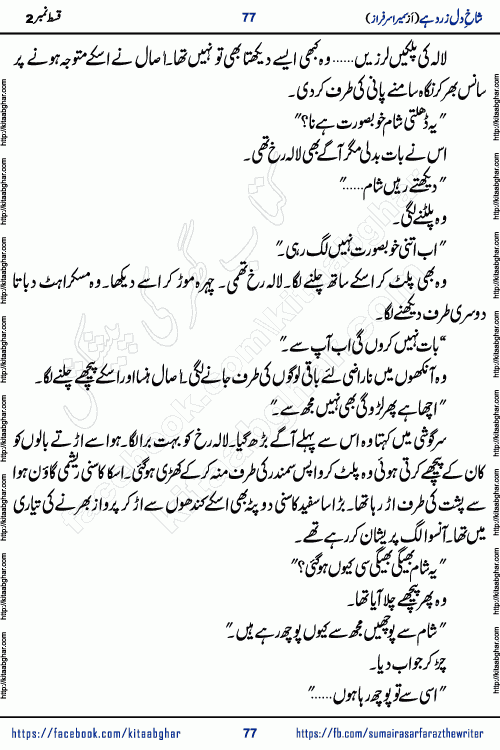 شاخِ دل زرد ہے (از سمیرا سرفراز)
77
قسط نمبر 2
لالہ کی پلکیں لرزیں...... وہ کبھی ایسے دیکھتا بھی تو نہیں تھا۔ اصال نے اسکے متوجہ ہونے پر
سانس بھر کر نگاہ سامنے پانی کی طرف کر دی۔
"یہ ڈھلتی شام خوبصورت ہے نا؟"
اس نے بات بدلی مگر آگے بھی لالہ رخ تھی۔
"دیکھتے رہیں شام......"
وہ پلٹنے لگی۔
"اب اتنی خوبصورت نہیں لگ رہی۔"
وہ بھی پلٹ کر اسکے ساتھ چلنے لگا۔ لالہ رخ تھمی۔ چہرہ موڑ کر اسے دیکھا۔ وہ مسکراہٹ دباتا
دوسری طرف دیکھنے لگا۔
"بات نہیں کروں گی اب آپ سے۔"
وہ آنکھوں میں ناراضی لئے باقی لوگوں کی طرف جانے لگی۔ اصال ہنسا اور اسکے پیچھے چلنے لگا۔
"اچھا ہے پھر لڑو گی بھی نہیں مجھ سے۔"
سرگوشی میں کہتا وہ اس سے پہلے آگے بڑھ گیا۔ لالہ رخ کو بہت برا لگا۔ ہوا سے اڑتے بالوں کو
کان کے پیچھے کرتی ہوئی وہ پلٹ کر واپس سمندر کی طرف منہ کر کے کھڑی ہو گئی۔ اسکا کاسنی ریشمی گاؤن ہوا
سے پشت کی طرف اڑ رہا تھا۔ بڑا سا سفید کاسنی دوپٹہ بھی اسکے کندھوں سے اڑ کر پرواز بھرنے کی تیاری
میں تھا۔ آنسو الگ پریشان کر رہے تھے۔
"یہ شام بھیگی بھیگی سی کیوں ہو گئی؟"
وہ پھر پیچھے چلا آیا تھا۔
"شام سے پوچھیں مجھ سے کیوں پوچھ رہے ہیں۔"
چڑ کر جواب دیا۔
"اسی سے تو پوچھ رہا ہوں......"
https://facebook.com/kitaabghar
77
https://fb.com/sumairasarfarazthewriter
http://kitaabghar.com
http://kitaabghar.com
http://kitaabghar.com
http://kitaabghar.com
http://kitaabghar.com
http://kitaabghar.com
http://kitaabghar.com
http://kitaabghar.com